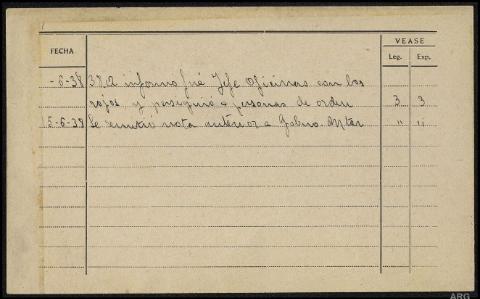 VEASE
FECHA
Leg. Exp.
-6-38 informo fué Jefe Oficinas con los
rojos y persiguió a personas de orden 3 3
15-6-39 Se remitió nota anterior a Gobno. Mtar " "
ARG